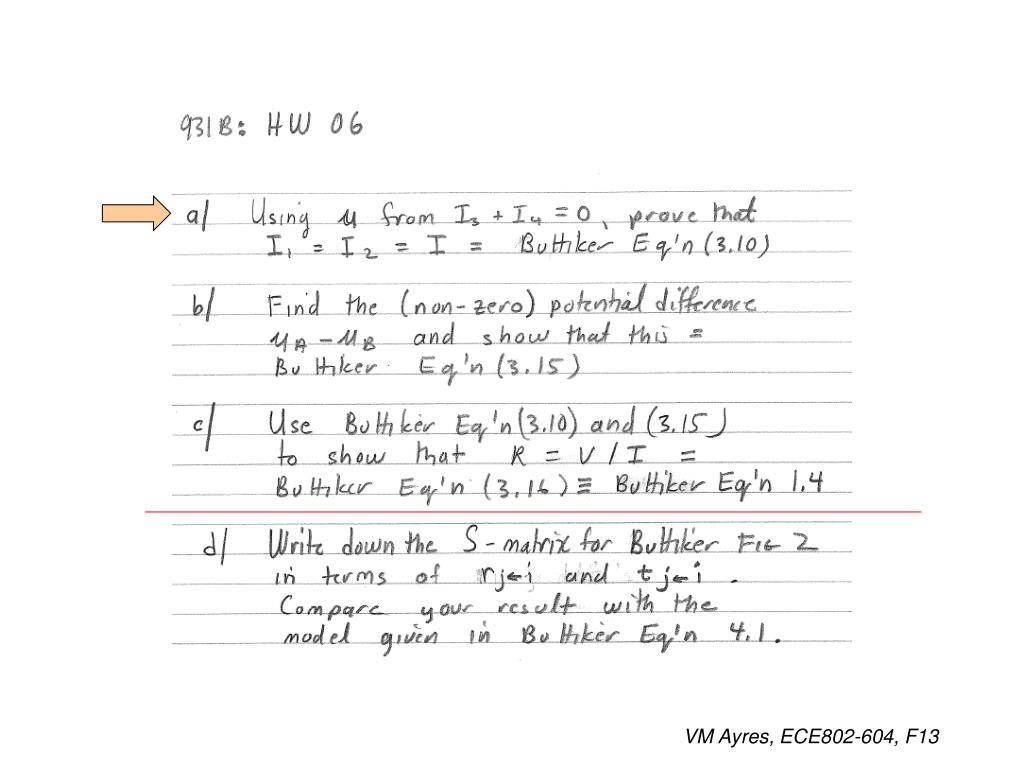 931B: HW 06
a/ Using μ from I₃ + I₄ = 0, prove that
I₁ = I₂ = I = Buttiker Eq'n (3.10)
b/ Find the (non-zero) potential difference
μA - μB and show that this =
Buttiker Eq'n (3.15)
c/ Use Buttiker Eq'n (3.10) and (3.15)
to show that R = V / I =
Buttiker Eq'n (3.16) ≡ Buttiker Eq'n 1.4
d/ Write down the S-matrix for Buttiker FIG 2
in terms of rj←i and tj←i .
Compare your result with the
model given in Buttiker Eq'n 4.1.
VM Ayres, ECE802-604, F13